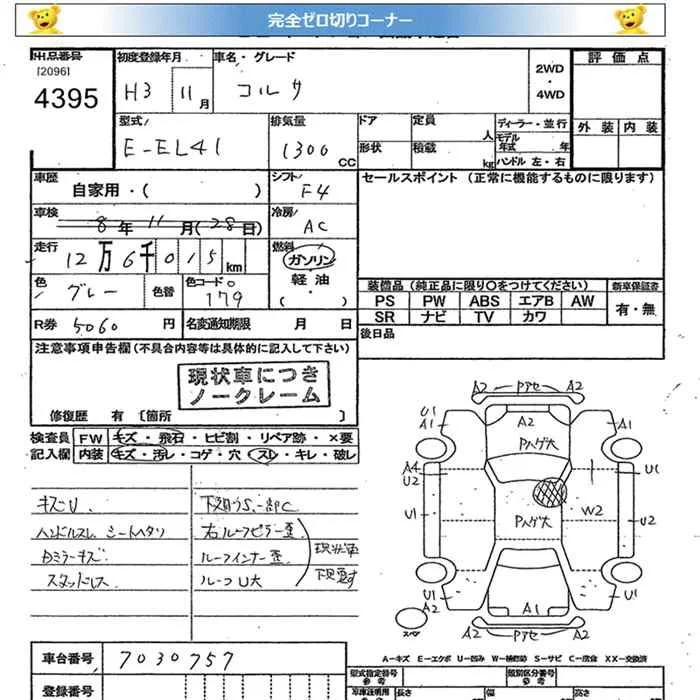 完全ゼロ切りコーナー
出品番号 初度登録年月 車名・グレード 評価点
[2096] 4395 H3 11月 コルサ 2WD・4WD
外装 内装
型式 排気量 ドア 定員 ディーラー・並行
E-EL41 1300 CC 人 モデル年式 年
形状 積載 kg ハンドル 左・右
車歴 シフト セールスポイント (正常に機能するものに限ります)
自家用・( ) F4
車検 8年 11月 (28日) 冷房 AC
走行 12万6千015km 燃料 ガソリン
軽油
・( )
色 グレー 色替 色コードNo 179
装備品 (純正品に限り○をつけてください) 新車保証書
PS PW ABS エアB AW 有・無
SR ナビ TV カワ
R券 5060 円 名変通知期限 月 日 後日品
注意事項申告欄 (不具合内容等は具体的に記入して下さい)
現状車につき
ノークレーム
修復歴 有 [箇所 ]
検査員 FW キズ・飛石・ヒビ割・リペア跡・×要
記入欄 内装 キズ・汚レ・コゲ・穴 スレ・キレ・破レ
キズU 下廻りS.一部C
ハンドルスレ シートヘタリ 右ルーフピラー歪
Dミラーキズ ルーフインナー歪 現状車
スタッドレス ルーフU大 下見要す
A2 Pアセ A2
U1 A1 A2 A1
Pハゲ大
A4 U2 U1
U1 Pハゲ大 W2 U2
U1 A2 A1 U1
スペア A2 Pアセ A2
A-キズ E-エクボ U-凹み W-補修跡 S-サビ C-腐食 XX-交換済
車台番号 7030757 型式指定番号 参考 類別区分番号 参考
登録番号 車庫証明用 参考 長さ 幅 高さ